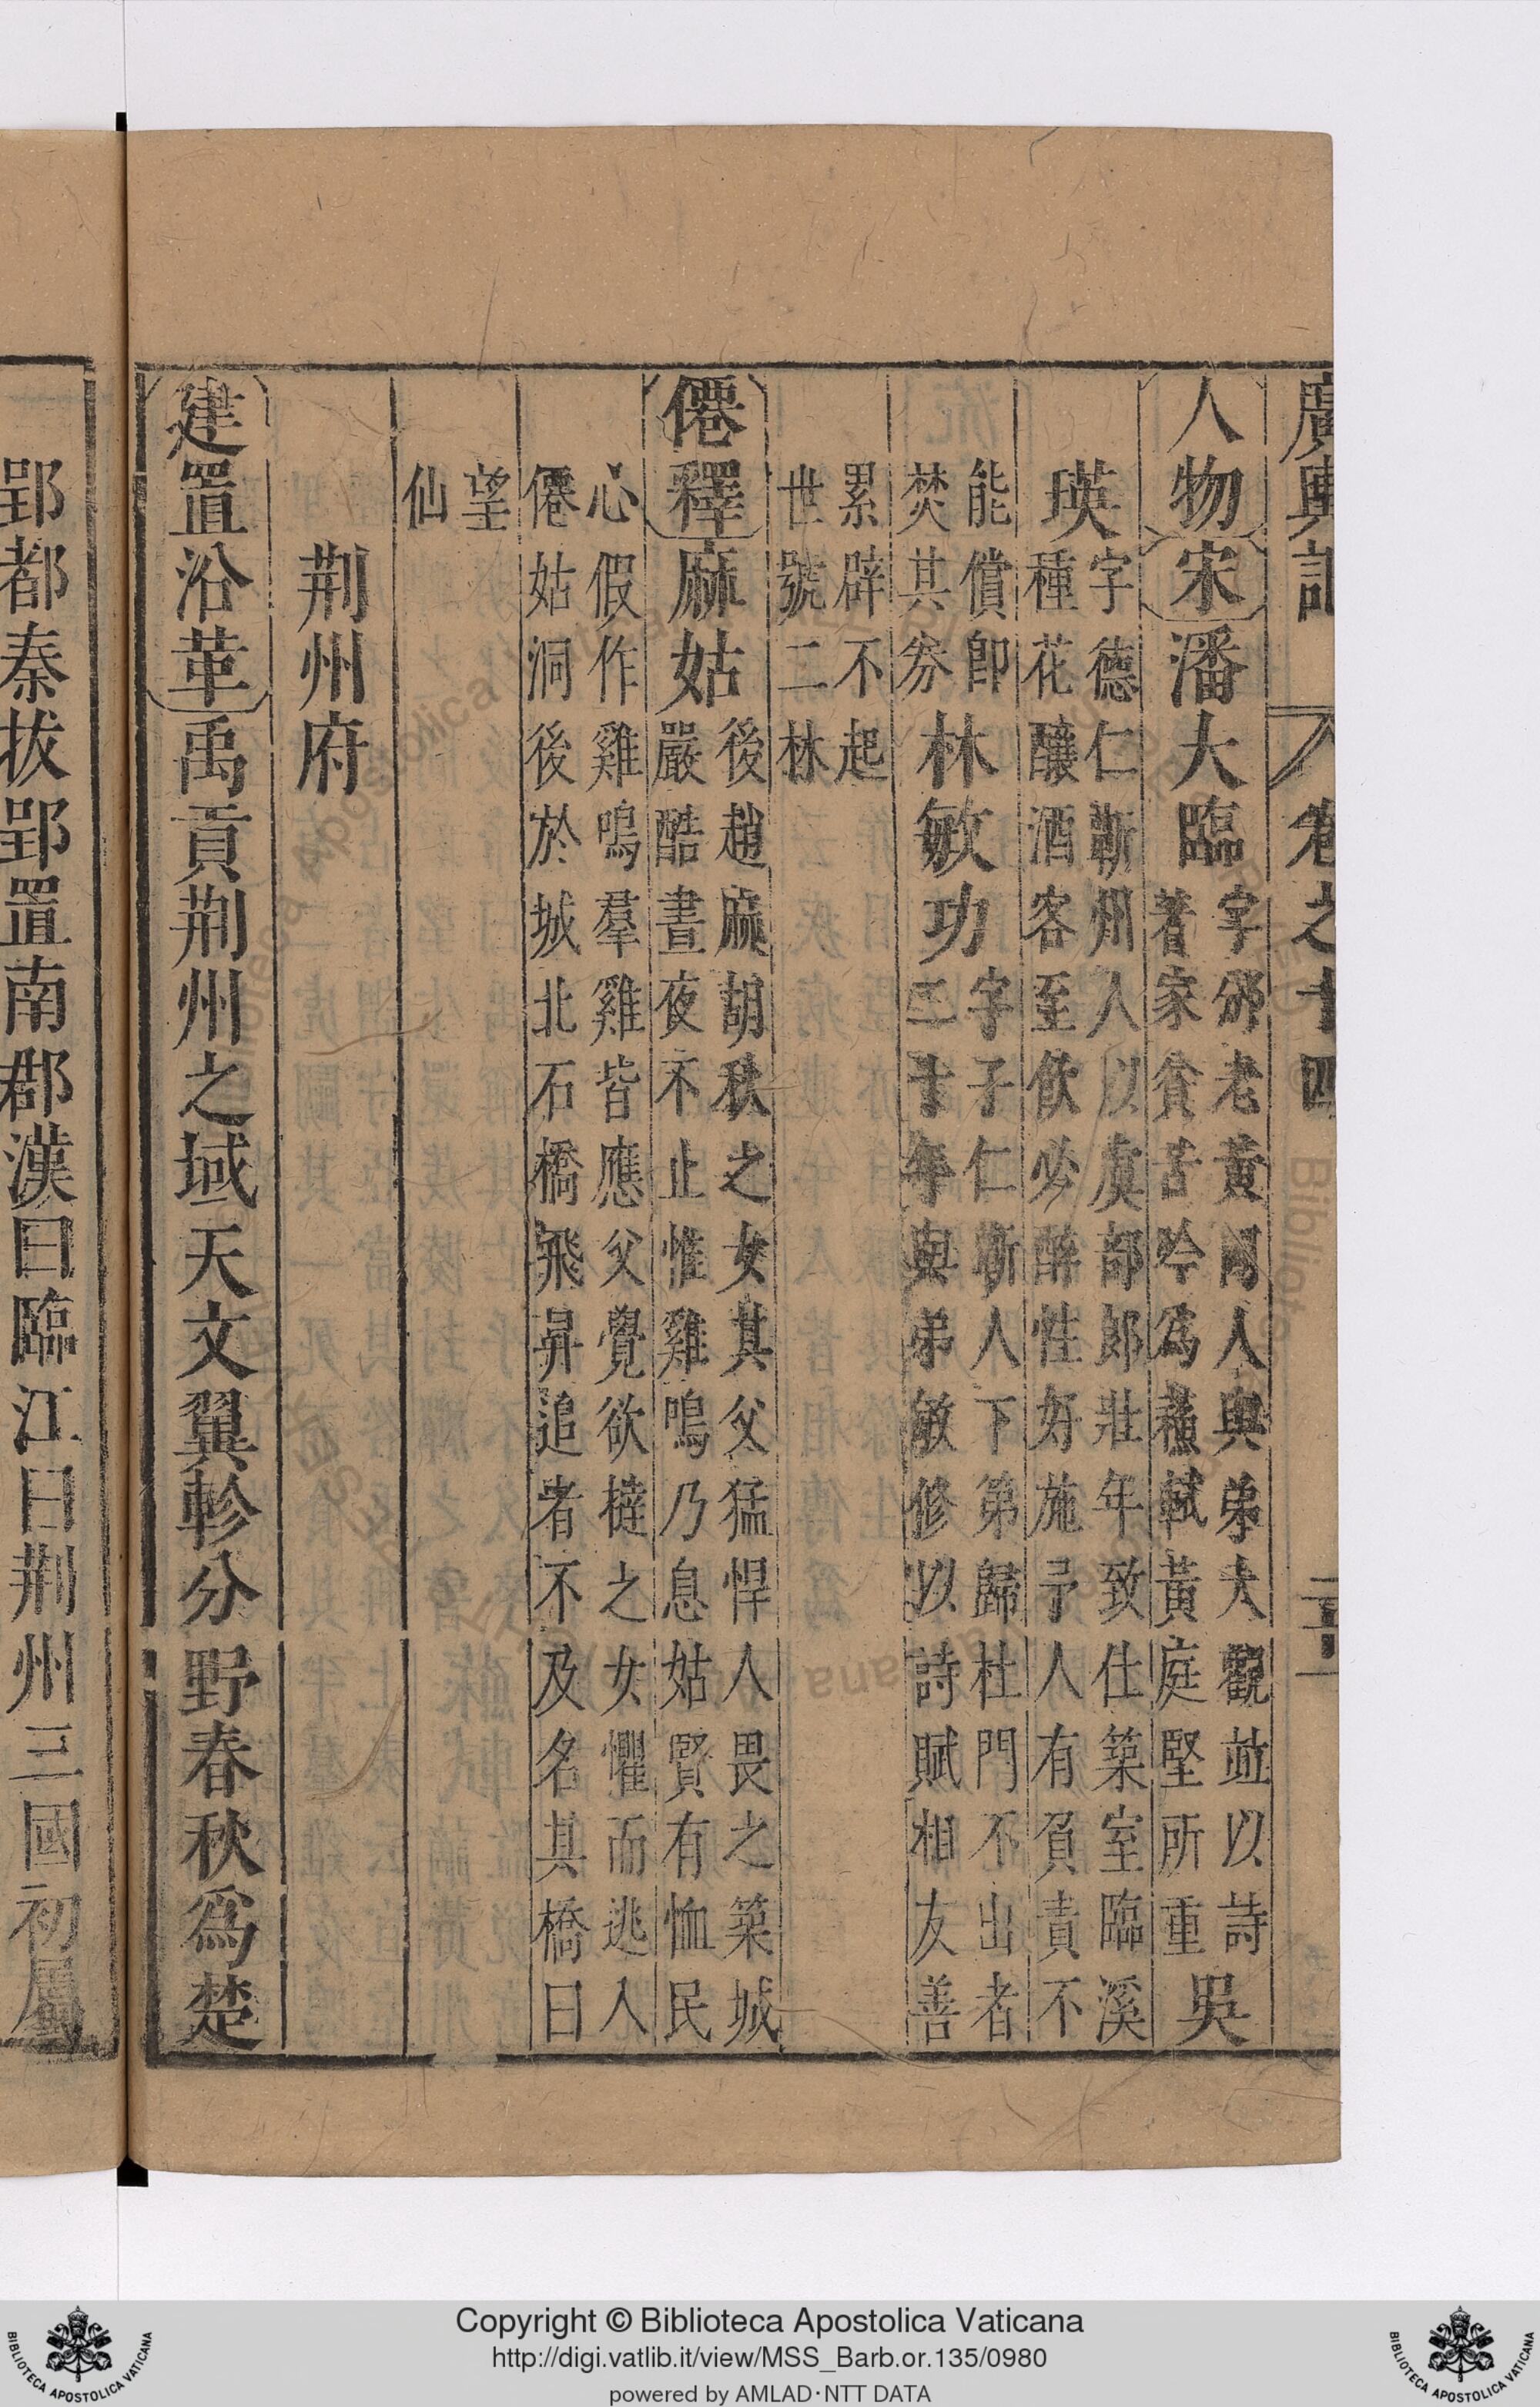 廣輿記 卷之十四
人物 宋 潘大臨 字邠老黃岡人與弟大觀並以詩
著家貧苦吟為蘇軾黃庭堅所重 吳
瑛 字德仁蘄州人以虞部郎壯年致仕築室臨溪
種花釀酒客至飲必醉性好施予人有負責不
能償即
焚其券 林敏功 字子仁蘄人下第歸杜門不出者
二十年與弟敏修以詩賦相友善
累辟不起
世號二林
僊釋 麻姑 後趙麻胡秋之女其父猛悍人畏之築城
嚴酷晝夜不止惟雞鳴乃息姑賢有恤民
心假作雞鳴羣雞皆應父覺欲撻之女懼而逃入
僊姑洞後於城北石橋飛昇追者不及名其橋曰
望
仙
荆州府
建置沿革 禹貢荆州之域天文翼軫分野春秋爲楚
郢都秦拔郢置南郡漢曰臨江曰荆州三國初屬
Copyright © Biblioteca Apostolica Vaticana
http://digi.vatlib.it/view/MSS_Barb.or.135/0980
powered by AMLAD·NTT DATA
BIBLIOTECA APOSTOLICA VATICANA
BIBLIOTECA APOSTOLICA VATICANA